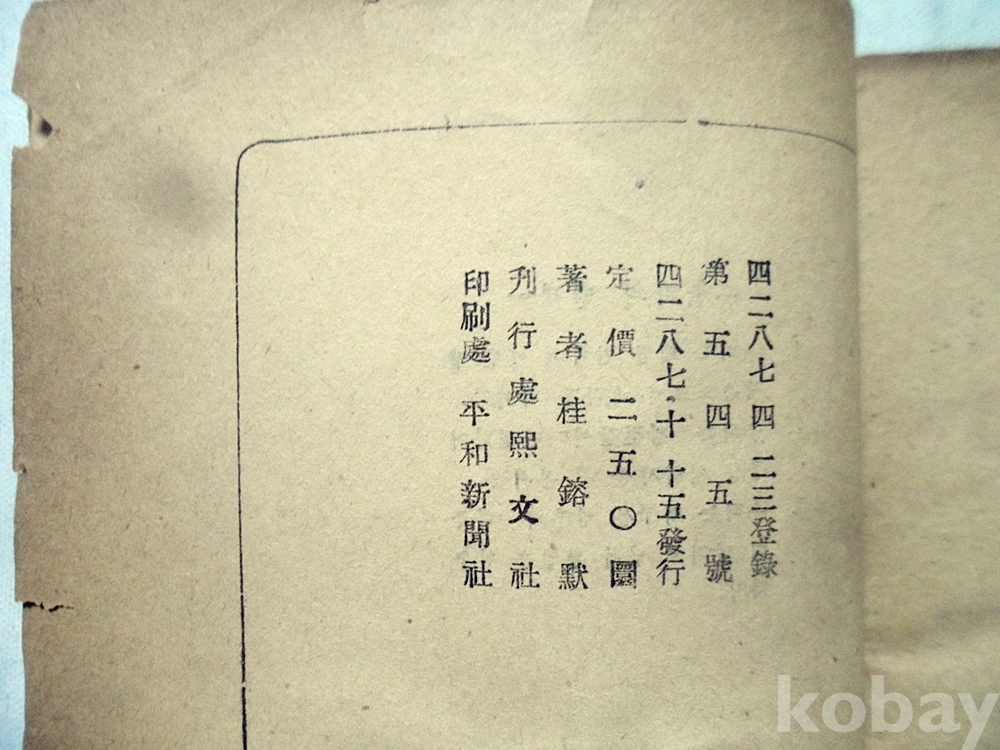 四二八七 四 二三登錄
第五四五號
四二八七·十 十五發行
定價二五〇圜
著者桂鎔默
刋行處熙文社
印刷處 平和新聞社
kobay